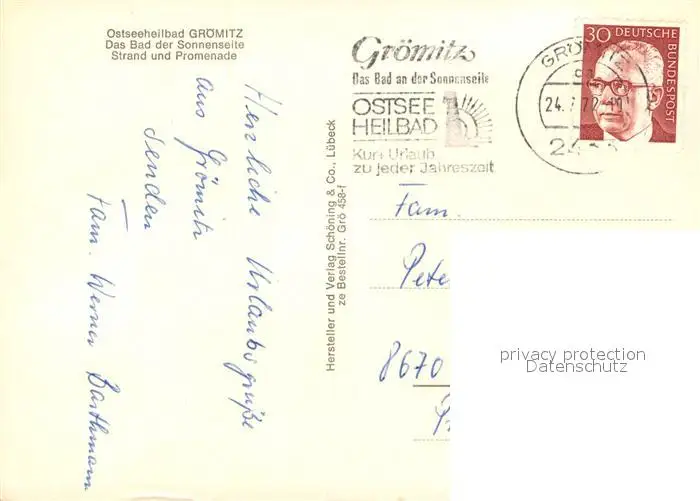 Ostseeheilbad GRÖMITZ
Das Bad der Sonnenseite
Strand und Promenade
Herzliche Urlaubsgrüße
aus Grömitz
senden
Fam. Werner Barthmann
Hersteller und Verlag Schöning & Co., Lübeck
ze Bestellnr. Grö 458-f
Grömitz
Das Bad an der Sonnenseite
OSTSEE
HEILBAD
Kur + Urlaub
zu jeder Jahreszeit
24.7.72
30 DEUTSCHE
BUNDESPOST
Fam.
Pete
8670
privacy protection
Datenschutz